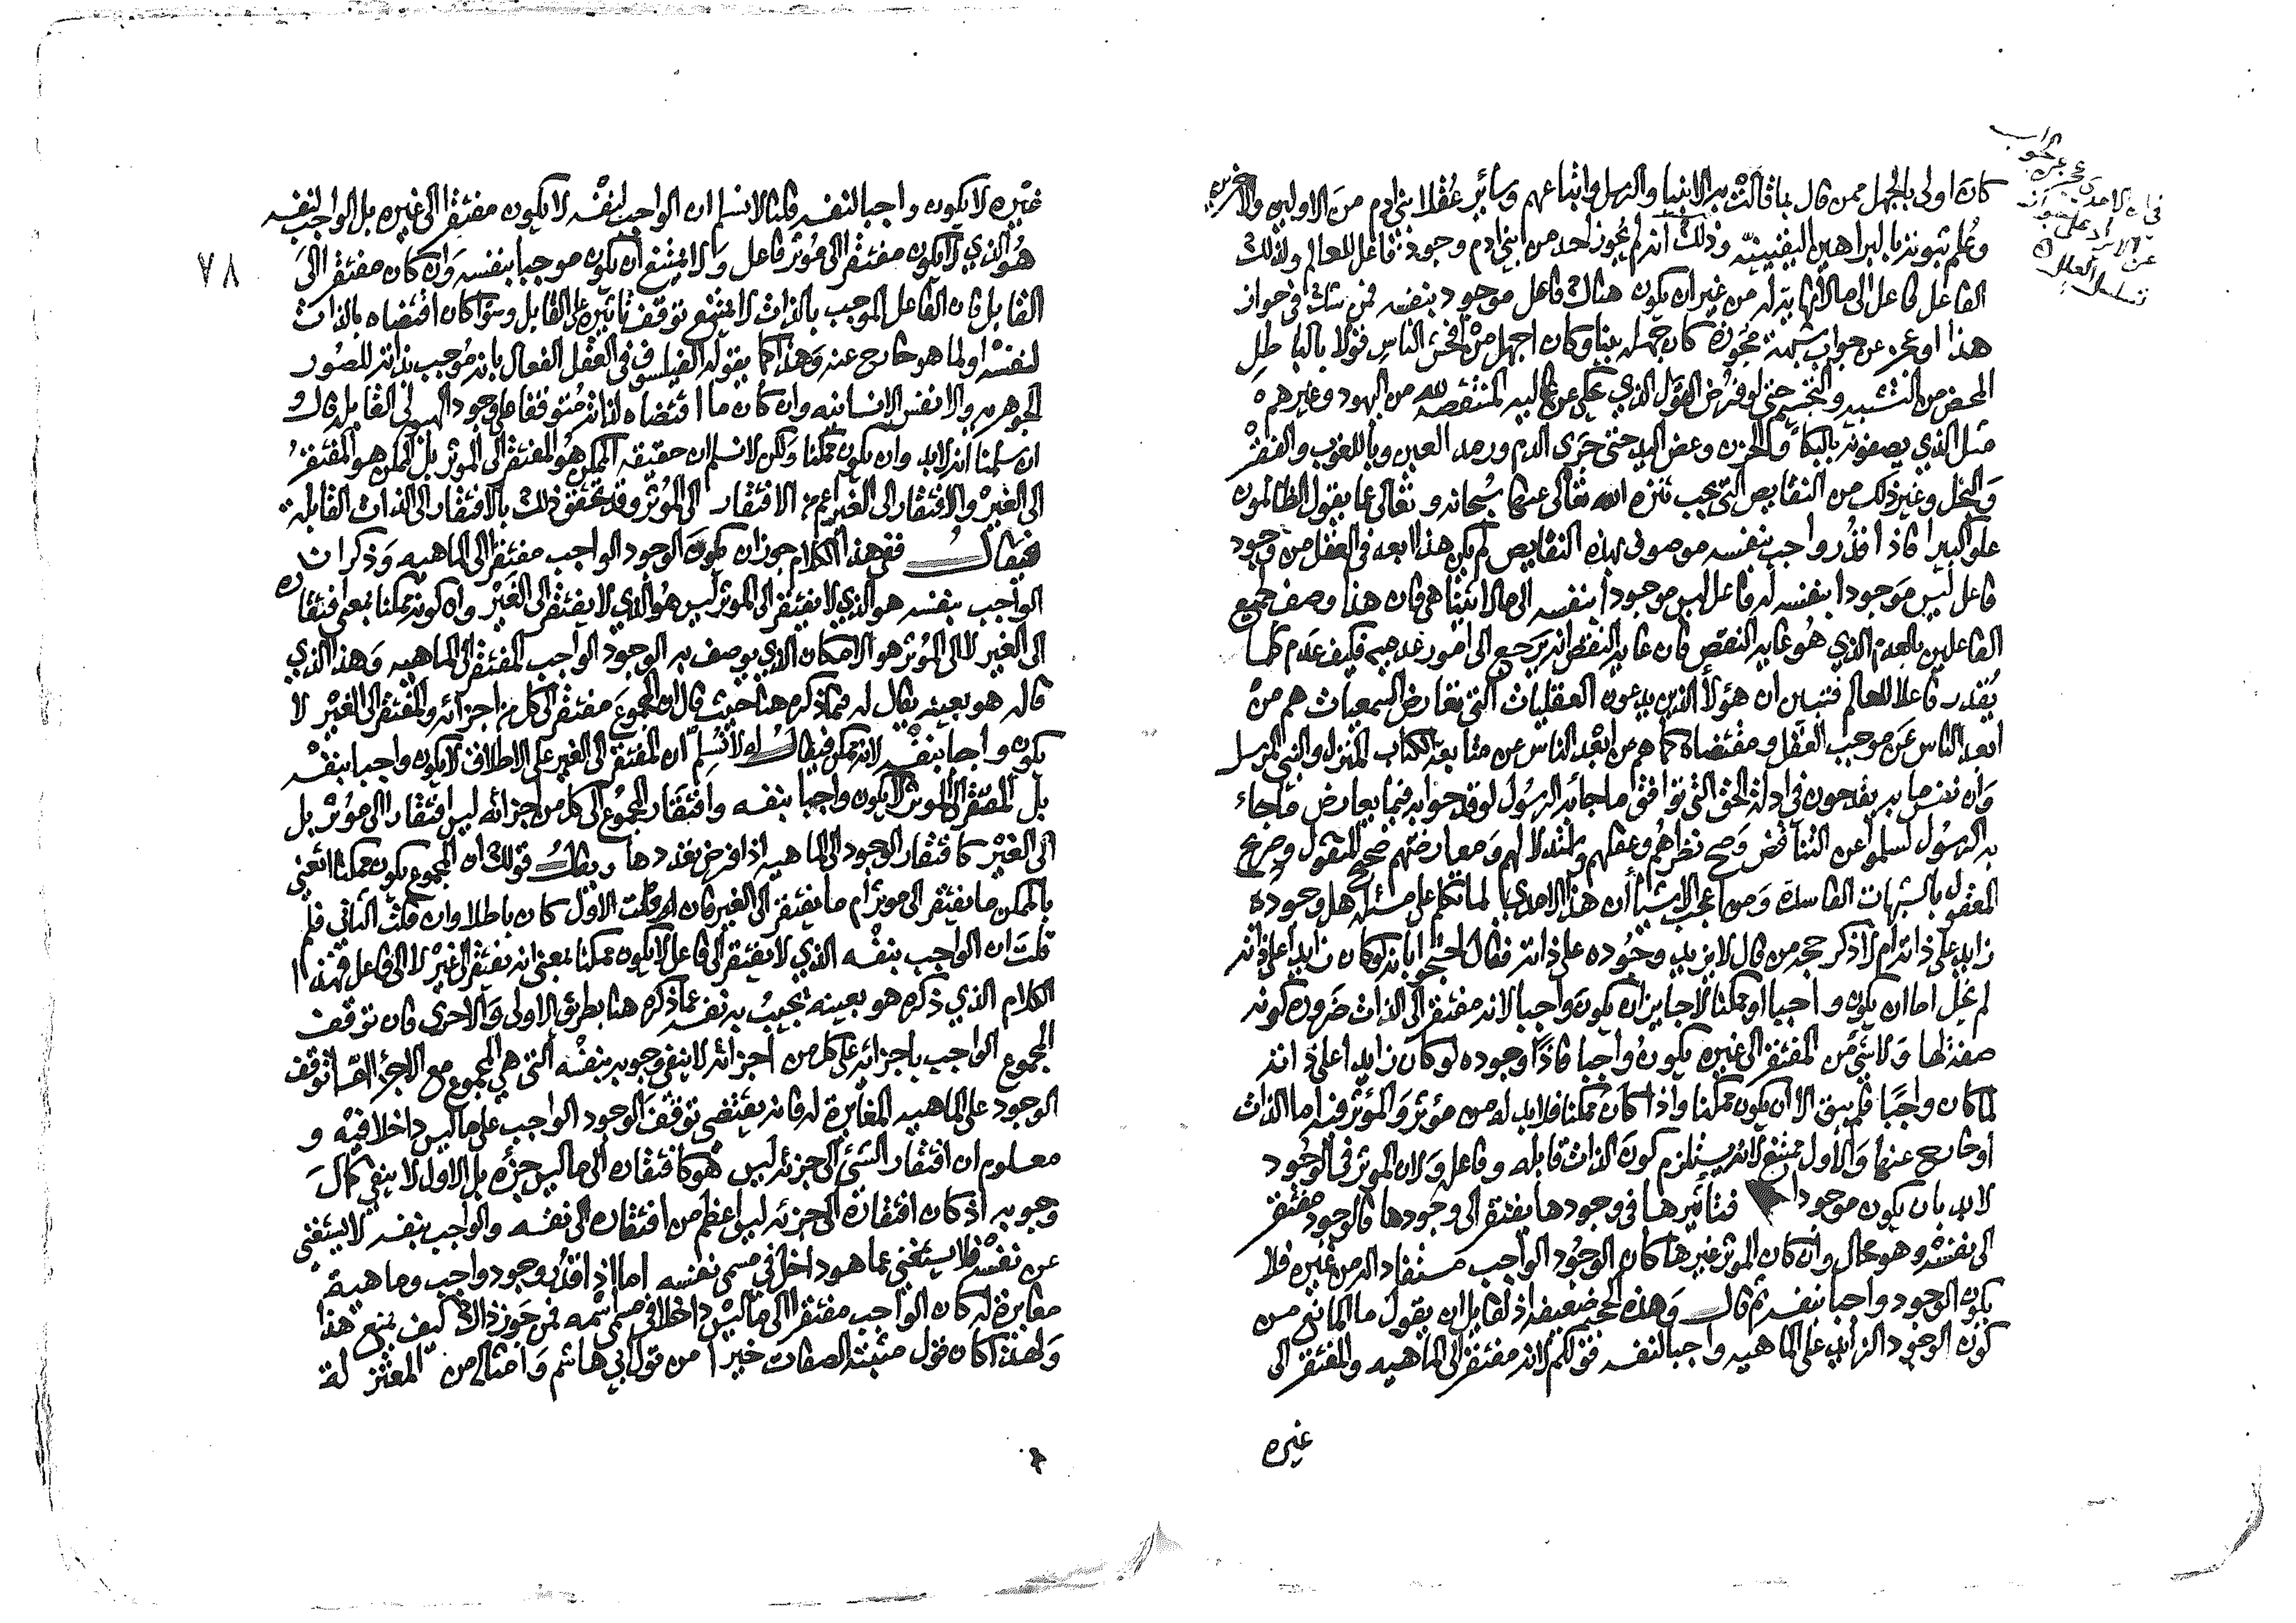 كان اولى بالجهل ممن قال بما قالت به الانبيا والرسل واتباعهم وسائر عقلا بني ادم من الاولين والاخرين
وعلم ثبوته بالبراهين اليقينيه وذلك انه لم يجوز احد من بني ادم وجود فاعل للعالم ولذلك
الفاعل فاعل الى ما لا نهاية له من غير ان يكون هناك فاعل موجود بنفسه فمن شك في جواز
هذا او عجز عن جواب شبهة مجوزه كان جهله بينا وكان اجهل من افحش الناس قولا بالباطل
المحض من التشبيه والتجسيم حتى لو فرض القول الذي يحكى عن غاليه المنتقصه لله من اليهود وغيرهم
مثل الذي يصفونه بالبكا والحزن وعض اليد حتى جرى الدم ورمد العين وباللغوب والفقر
والبخل وغير ذلك من النقايص التي يجب تنزه الله تعالى عنها سبحانه وتعالى عما يقول الظالمون
علوا كبيرا فاذا قدر واجب بنفسه موصوف بهذه النقايص لم يكن هذا ابعد في العقل من وجود
فاعل ليس موجودا بنفسه له فاعل ليس موجودا بنفسه الى ما لا يتناهى فان هذا وصف لجميع
الفاعلين بالعدم الذي هو غايه النقص فان غايه النقص انه يرجع الى امور عدميه فكيف عدم كل ما
يقدر فاعلا للعالم فتبين ان هؤلا الذين يدعون العقليات التي تعارض السمعيات هم من
ابعد الناس عن موجب العقل ومقتضاه كما هم من ابعد الناس عن متابعة الكتاب المنزل والنبي المرسل
وان نفس ما به يقدحون في ادلة الحق التي توافق ما جا به الرسول لو قدحوا به فيما يعارض ما جاء
به الرسول لسلموا عن التناقض وصح نظرهم وعقلهم واستدلالهم ومعارضتهم صحيح المنقول وصريح
المعقول بالشبهات الفاسدة ومن اعجب الاشيا ان هذا الامدي لما تكلم على مسئله هل وجوده
زايد على ذاته ام لا ذكر حجه من قال لا يزيد وجوده على ذاته فقال احتجوا بانه لو كان زايدا على ذاته
لم يخل اما ان يكون واجبا او ممكنا لا جايز ان يكون واجبا لانه مفتقر الى الذات ضرورة كونه
صفة لها ولا شي من المفتقر الى غيره يكون واجبا فاذا وجوده لو كان زايدا على ذاته
لما كان واجبا فلم يبق الا ان يكون ممكنا واذا كان ممكنا فلا بد له من مؤثر والمؤثر فيه اما الذات
او خارج عنها والاول ممتنع لانه يستلزم كون الذات قابله وفاعله ولان المؤثر في الوجود
لا بد ان يكون موجودا فتأثيرها في وجودها يفتقر الى وجودها فالوجود مفتقر
الى نفسه وهو محال وان كان المؤثر غيرها كان الوجود الواجب مستفادا له من غيره فلا
يكون الوجود واجبا بنفسه ثم قال وهذه الحجه ضعيفه اذ لقايل ان يقول ما المانع من
كون الوجود الزايد على الماهيه واجبا لنفسه قولكم لانه مفتقر الى الماهيه والمفتقر الى
غيره
٧٨
غيره لا يكون واجبا لنفسه قلنا لا نسلم ان الواجب لنفسه لا يكون مفتقرا الى غيره بل الواجب لنفسه
هو الذي لا يكون مفتقرا الى مؤثر فاعل ولا يمتنع ان يكون موجبا بنفسه وان كان مفتقرا الى
القابل فان الفاعل الموجب بالذات لا يمتنع توقف تأثيره على القابل وسوا كان اقتضاه بالذات
لنفسه او لما هو خارج عنه وهذا كما يقوله الفيلسوف في العقل الفعال بانه موجب بذاته للصور
الجوهريه والانفس الانسانيه وان كان ما اقتضاه لذاته متوقفا على وجود الهيولى القابله قال و
ان سلمنا انه لا بد وان يكون ممكنا ولكن لا نسلم ان حقيقه الممكن هو المفتقر الى المؤثر بل الممكن هو المفتقر
الى الغير والافتقار الى الغير اعم من الافتقار الى المؤثر وقد تحقق ذلك بالافتقار الى الذات القابله
فيقال ففي هذا الكلام جوز ان يكون الوجود الواجب مفتقرا الى الماهيه وذكر ان
الواجب بنفسه هو الذي لا يفتقر الى المؤثر ليس هو الذي لا يفتقر الى الغير وان كونه ممكنا بمعنى افتقاره
الى الغير لا الى المؤثر هو الامكان الذي يوصف به الوجود الواجب المفتقر الى الماهيه وهذا الذي
قاله هو بعينه يقال له فيما ذكره هنا حيث قال ان المجموع مفتقر الى كل من اجزائه والمفتقر الى الغير لا
يكون واجبا بنفسه لانه ممكن فيقال له لا نسلم ان المفتقر الى الغير على الاطلاق لا يكون واجبا بنفسه
بل المفتقر الى المؤثر لا يكون واجبا بنفسه وافتقار المجموع الى كل من اجزائه ليس افتقارا الى مؤثر بل
الى الغير كافتقار الوجود الى الماهيه اذا فرض تعددها ويقال قولك ان المجموع يكون ممكنا اتعني
بالممكن ما يفتقر الى مؤثر ام ما يفتقر الى الغير فان قلت الاول كان باطلا وان قلت الثاني فلم
قلت ان الواجب بنفسه الذي لا يفتقر الى فاعل لا يكون ممكنا بمعنى انه يفتقر الى غير لا الى فاعل فهذا
الكلام الذي ذكره هو بعينه يجيب به نفسه عما ذكره هنا بطريق الاولى والاحرى فان توقف
المجموع الواجب باجزائه على كل من اجزائه لا ينفي وجوبه بنفسه التي هي المجموع مع الاجزا اما توقف
الوجود على الماهيه المغايرة له فانه يقتضي توقف الوجود الواجب على ما ليس داخلا فيه و
معلوم ان افتقار الشئ الى جزئه ليس هو كافتقاره الى ما ليس جزءه بل الاول لا ينفي كمال
وجوبه اذ كان افتقاره الى جزئه ليس اعظم من افتقاره الى نفسه والواجب بنفسه لا يستغني
عن نفسه فلا يستغني عما هو داخل في مسمى نفسه اما اذا قدر وجود واجب وماهية
مغايرة له كان الواجب مفتقرا الى ما ليس داخلا في مسمى اسمه فمن جوز ذاك كيف يمنع هذا
ولهذا كان قول مثبتة الصفات خيرا من قول ابي هاشم وامثاله من المعتزلة